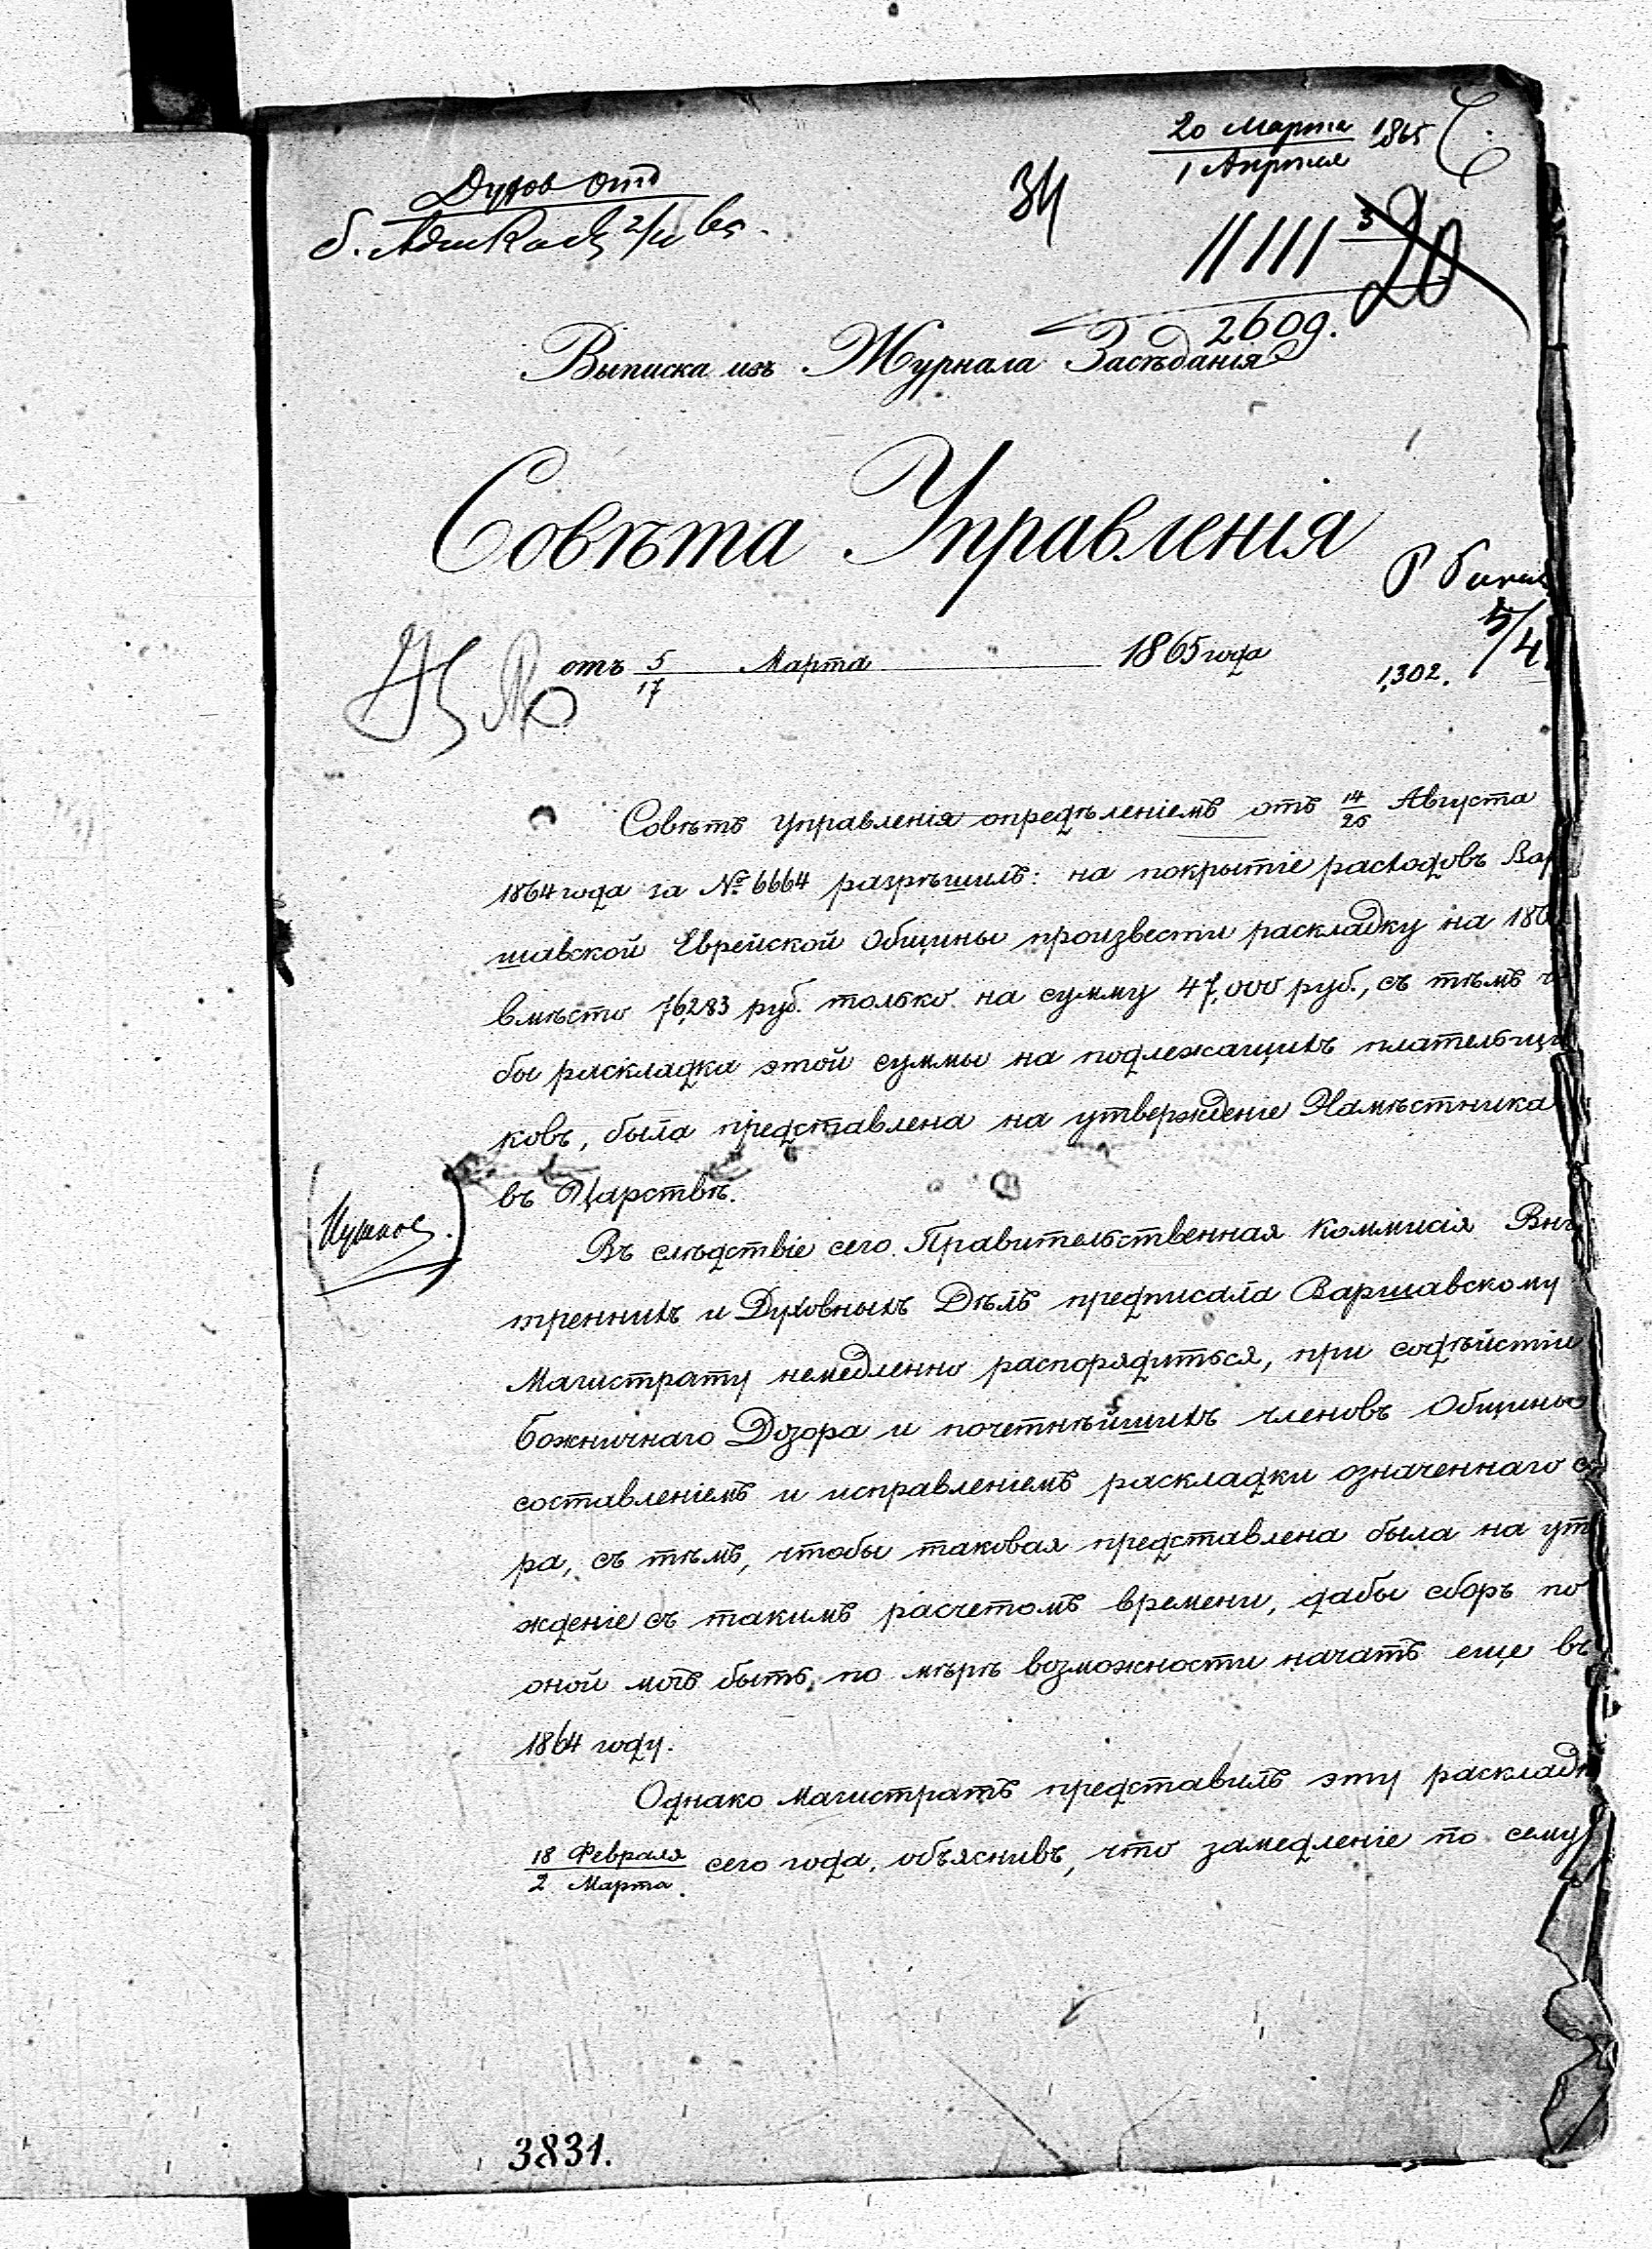 20 Марта 1865
1 Апрѣля
Духов Отд
34
3
20
2609.
Выписка изъ Журнала Засѣданія
Совѣта Управленія
5/4
отъ 5/17 Марта 1865 года
1,302.
Совѣтъ Управленія опредѣленіемъ отъ 14/26 Августа
1864 года за № 6664 разрѣшилъ: на покрытіе расходовъ Вар
шавской Еврейской Общины произвести раскладку на 186
вмѣсто 76,283 руб. только на сумму 47,000 руб., съ тѣмъ ч
бы раскладка этой суммы на подлежащихъ плательщи
ковъ, была представлена на утвержденіе Намѣстника
въ Царствѣ.
Въ слѣдствіе сего Правительственная Коммисія Вну
треннихъ и Духовныхъ Дѣлъ предписала Варшавскому
Магистрату немедленно распорядиться, при содѣйстіи
Божничнаго Дозора и почетнѣйшихъ членовъ Общины
составленіемъ и исправленіемъ раскладки означеннаго с
ра, съ тѣмъ, чтобы таковая представлена была на ут
жденіе съ такимъ расчетомъ времени, дабы сборъ по
оной могъ быть, по мѣрѣ возможности начатъ еще въ
1864 году.
Однако Магистратъ представилъ эту раскладк
18 Февраля
2 Марта сего года, объяснивъ, что замедленіе по сему
3831.